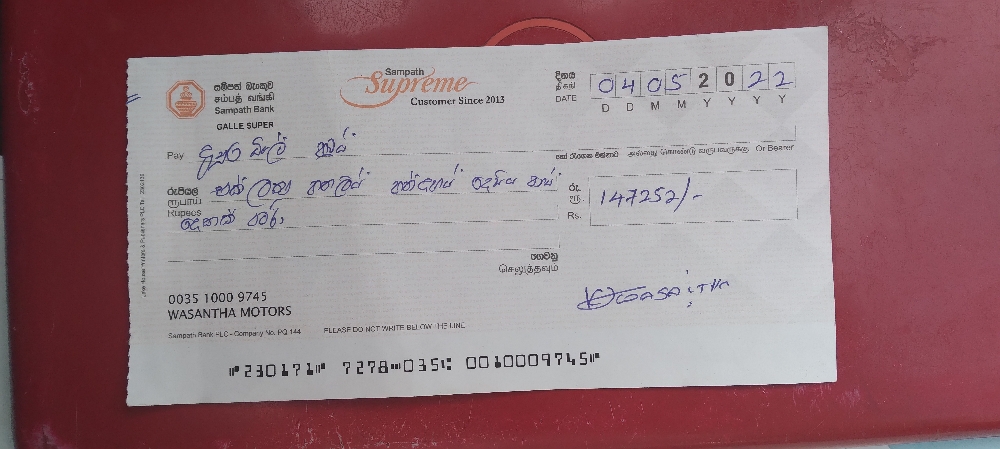 සම්පත් බැංකුව
சம்பத் வங்கி
Sampath Bank
GALLE SUPER
Sampath
Supreme
Customer Since 2013
දිනය
திகதி
DATE
04052022
D D M M Y Y Y Y
Pay
හෝ රැගෙන එන්නාට அல்லது கொண்டு வருபவருக்கு Or Bearer
රුපියල්
ரூபாய்
Rupees
එක් ලක්ෂ හතලිස් හත්දහස් දෙසිය පනස්
දෙකක් පමණි
රු.
ரூ.
Rs.
147252/-
ගෙවනු
செலுத்தவும்
0035 1000 9745
WASANTHA MOTORS
Sampath Bank PLC - Company No. PQ 144
PLEASE DO NOT WRITE BELOW THE LINE
⑈230171⑈ 7278⑉035⑆ 0010009745⑈